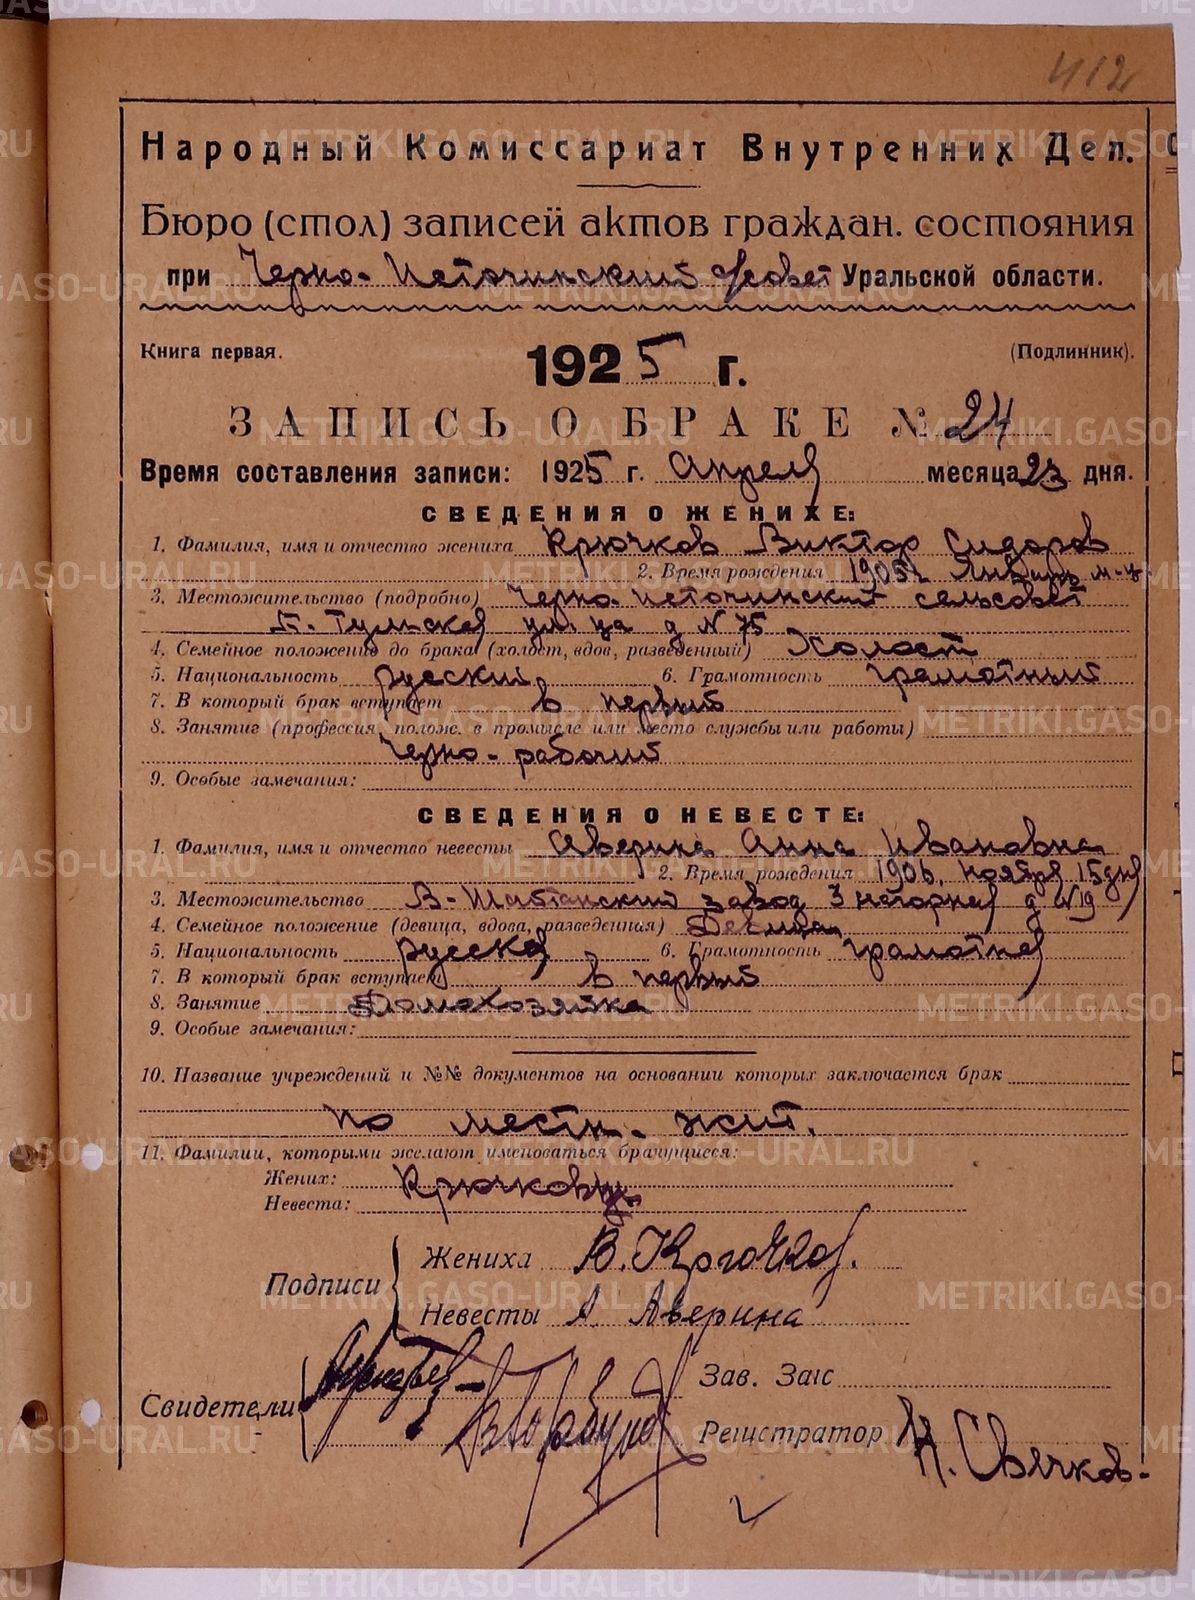 412
Народный Комиссариат Внутренних Дел.
Бюро (стол) записей актов граждан. состояния
при Черно-Источинский с/совет Уральской области.
Книга первая. 1925 г. (Подлинник).
ЗАПИСЬ О БРАКЕ № 24
Время составления записи: 1925 г. Апреля месяца 23 дня.
СВЕДЕНИЯ О ЖЕНИХЕ:
1. Фамилия, имя и отчество жениха Крючков Виктор Сидоров
2. Время рождения 1905 г. Январь м-ц
3. Местожительство (подробно) Черно-Источинский сельсовет
Б-Тульская улица д № 75
4. Семейное положение до брака (холост, вдов, разведенный) Холост
5. Национальность русский 6. Грамотность грамотный
7. В который брак вступает в первый
8. Занятие (профессия, полож. в промысле или место службы или работы)
Черно-рабочий
9. Особые замечания:
СВЕДЕНИЯ О НЕВЕСТЕ:
1. Фамилия, имя и отчество невесты Аверина Анна Ивановна
2. Время рождения 1906. ноября 15 дня
3. Местожительство В-Шайтанский завод 3 нагорная д №19
4. Семейное положение (девица, вдова, разведенная) Девица
5. Национальность русская 6. Грамотность грамотная
7. В который брак вступает в первый
8. Занятие Домохозяйка
9. Особые замечания:
10. Название учреждений и №№ документов на основании которых заключается брак
по местн. жит.
11. Фамилии, которыми желают именоваться брачущиеся:
Жених: Крючковы
Невеста:
Подписи
Жениха В. Крючков.
Невесты А. Аверина
Свидетели
Зав. Загс
Регистратор Н. Свечков
METRIKI.GASO-URAL.RU